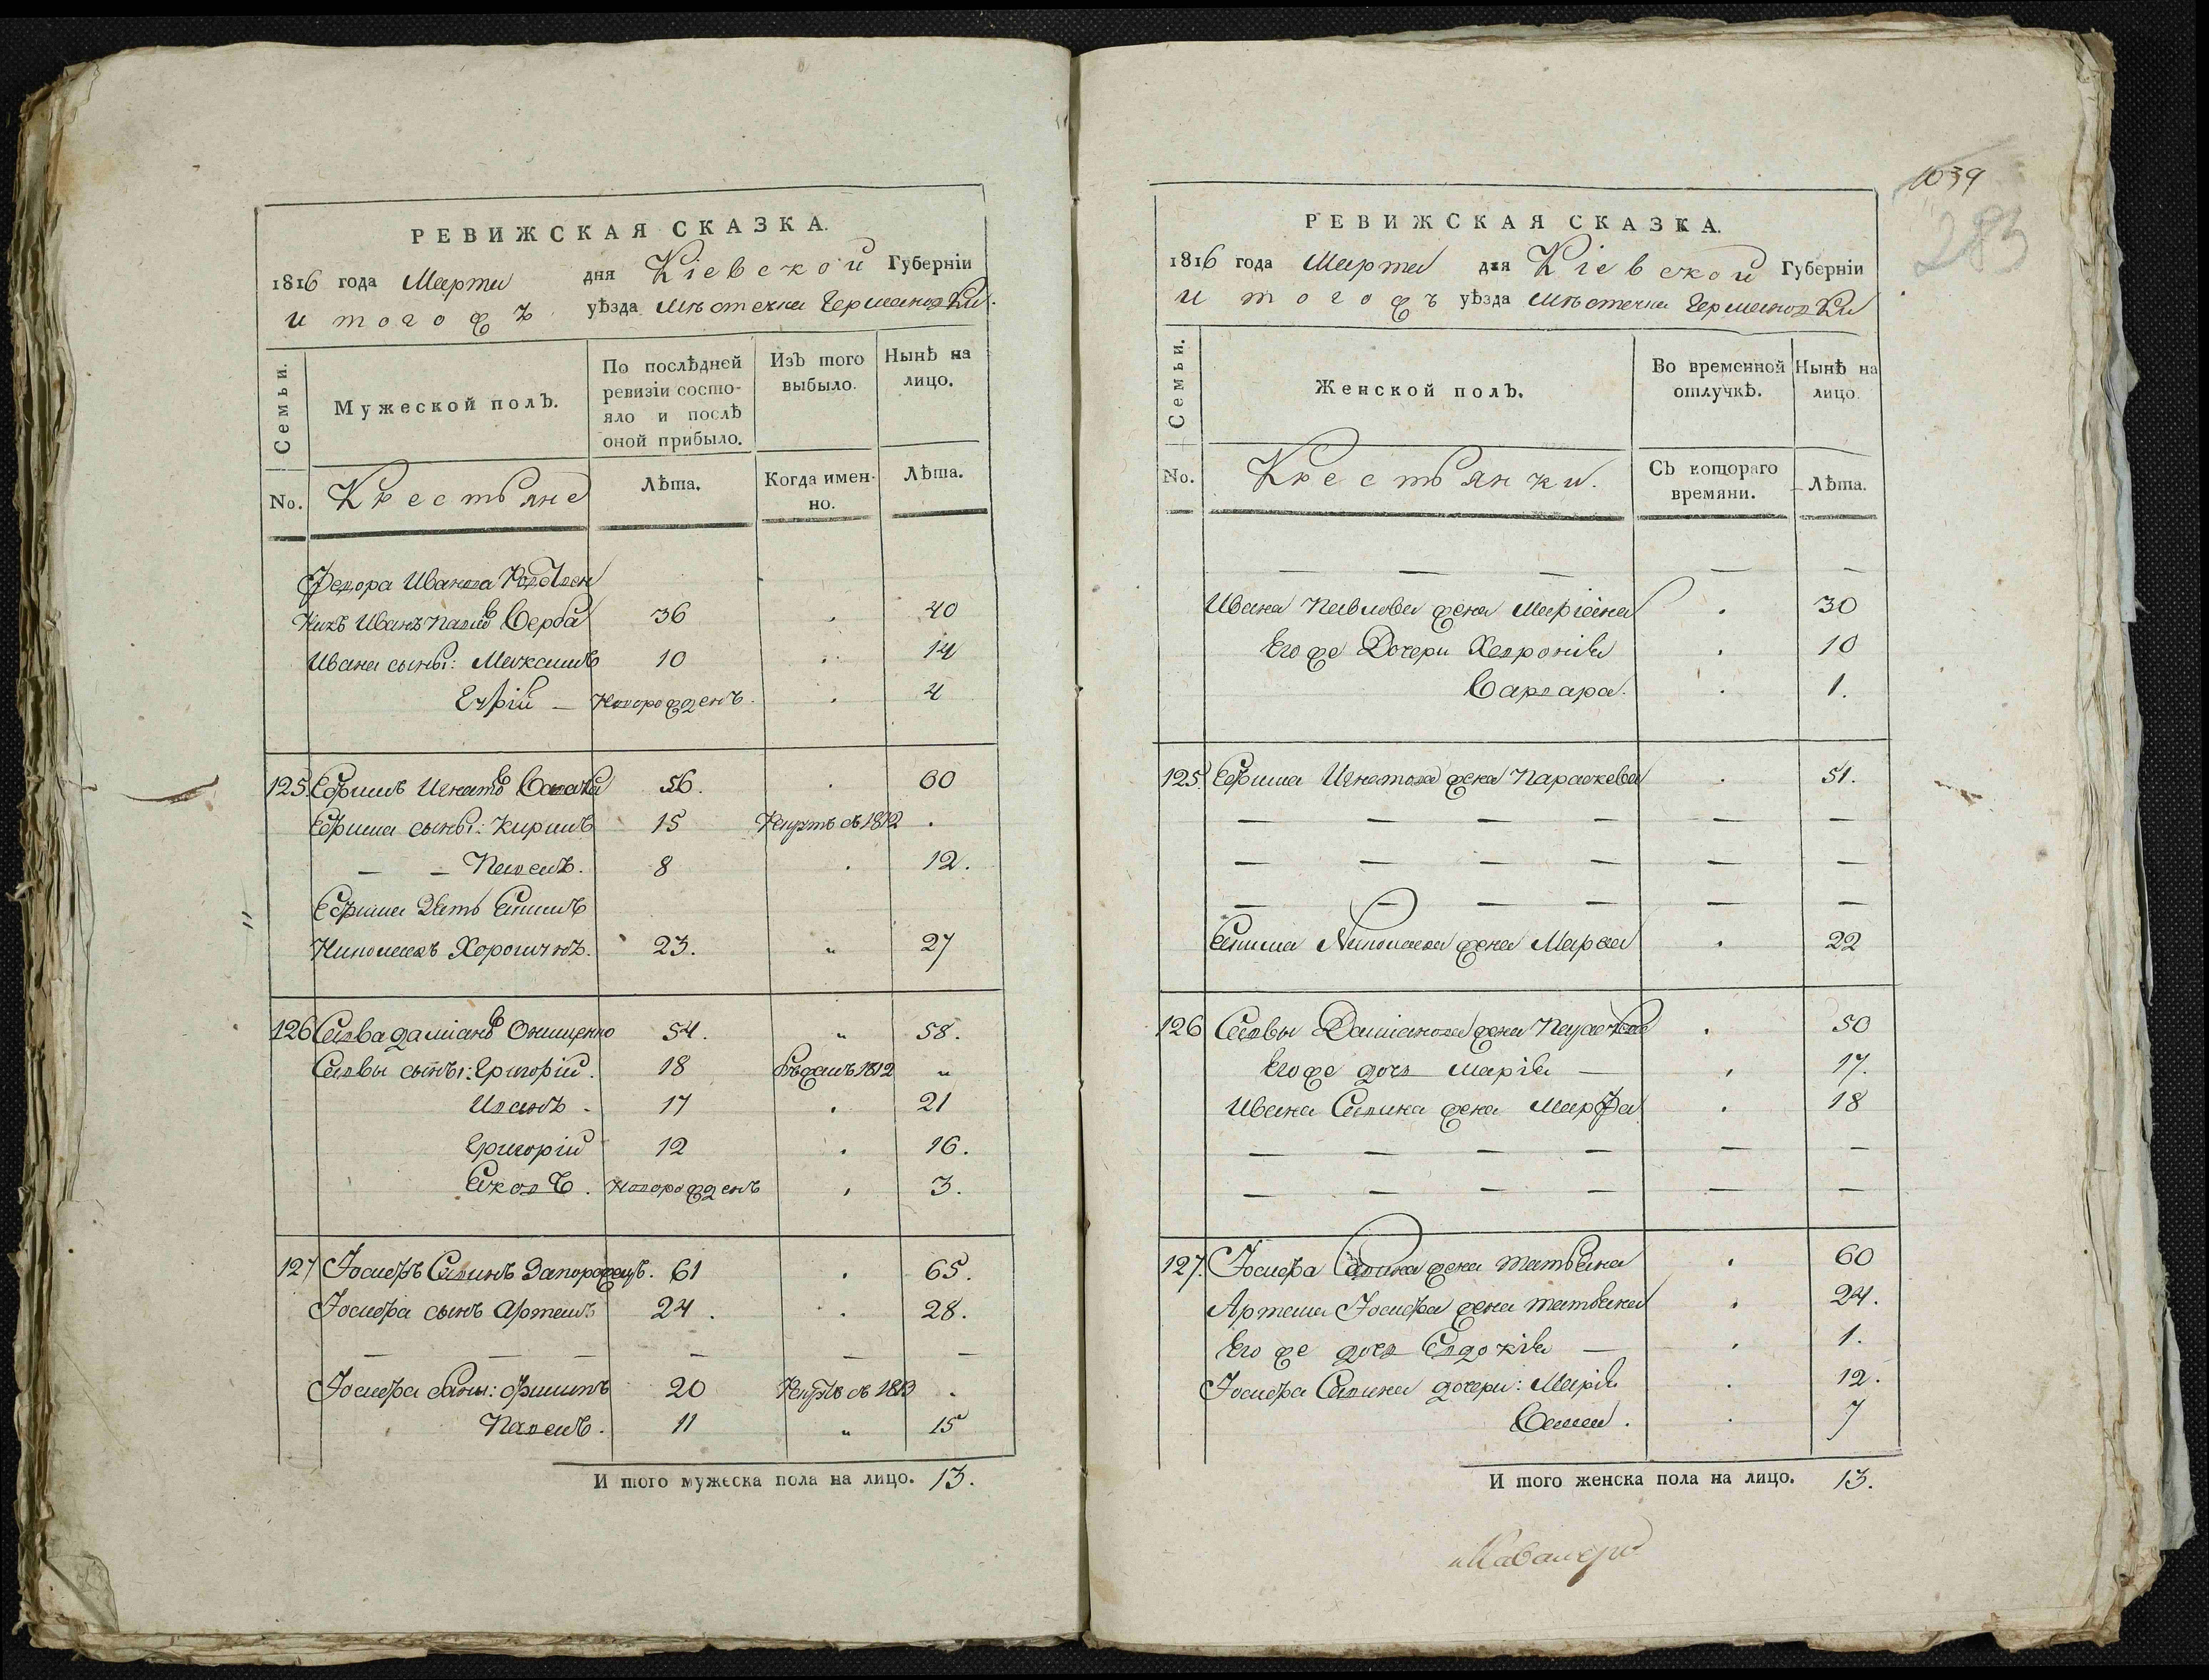 РЕВИЖСКАЯ СКАЗКА.
1816 года Марта дня Кіевской Губерніи
и тогожъ уѣзда мѣстечка Германовки.
Семьи.
Мужеской полъ.
По послѣдней ревизіи состо-
яло и послѣ оной прибыло.
Изъ того выбыло.
Нынѣ на лицо.
No.
Крестьяне
Лѣта.
Когда имен-
но.
Лѣта.
Федора Иванова
Иванъ Павловъ Верба 36 40
Ивана сыны: Максимъ 10 14
Юрій — Новорожденъ 4
125. Ефимъ Игнатовъ 56. 60
Ефима сыны: 15 1812
— — Павелъ. 8 12.
Ефима Зять Якимъ
23. " 27
126 Савва Даміановъ Онищенко 54. " 58.
Саввы сыны: Григорій. 18 1812 "
Иванъ. 17 21
Григорій 12 16.
Яковъ. Новорожденъ 3.
127 Іосифъ Савинъ Запорожецъ. 61 65.
Іосифа сынъ Артемъ 24. 28.
— — — — — —
Іосифа сыны: Филипъ 20 1813
Павелъ. 11 " 15
И того мужеска пола на лицо. 13.
1039
283
РЕВИЖСКАЯ СКАЗКА.
1816 года Марта дня Кіевской Губерніи
и тогожъ уѣзда мѣстечка Германовки
Семьи.
Женской полъ.
Во временной отлучкѣ.
Нынѣ на лицо.
No.
Крестьянки.
Съ котораго времяни.
Лѣта.
— — — — —
Ивана Павлова жена Маріана 30
Его же Дочери Хевронія 10
Варвара. 1.
125. Ефима Игнатова жена Параскева 51.
— — — — — —
— — — — — —
— — — — — —
Якима жена Марфа 22
126 Саввы Даміанова жена Параскева 50
Его же дочь Марія — 17.
Ивана Савина жена Марфа 18
— — — — — —
— — — — — —
127. Іосифа Савина жена Татьяна 60
Артема Іосифа жена Татьяна 24.
Его же дочь Евдокія — 1.
Іосифа Савина дочери: Марія 12.
7
И того женска пола на лицо. 13.